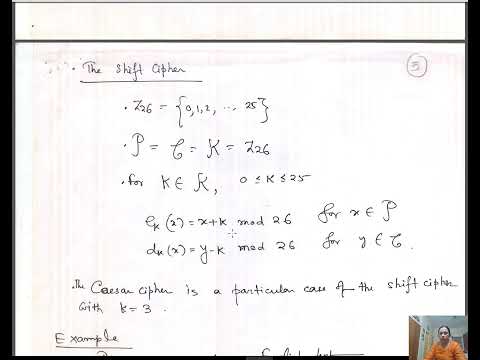 The Shift Cipher
3
Z26 = {0, 1, 2, ... 25}
P = C = K = Z26
for K ∈ K, 0 ≤ K ≤ 25
eK(x) = x+k mod 26 for x ∈ P
dK(x) = y-k mod 26 for y ∈ C.
The Caesar cipher is a particular case of the shift cipher
with k = 3.
Example